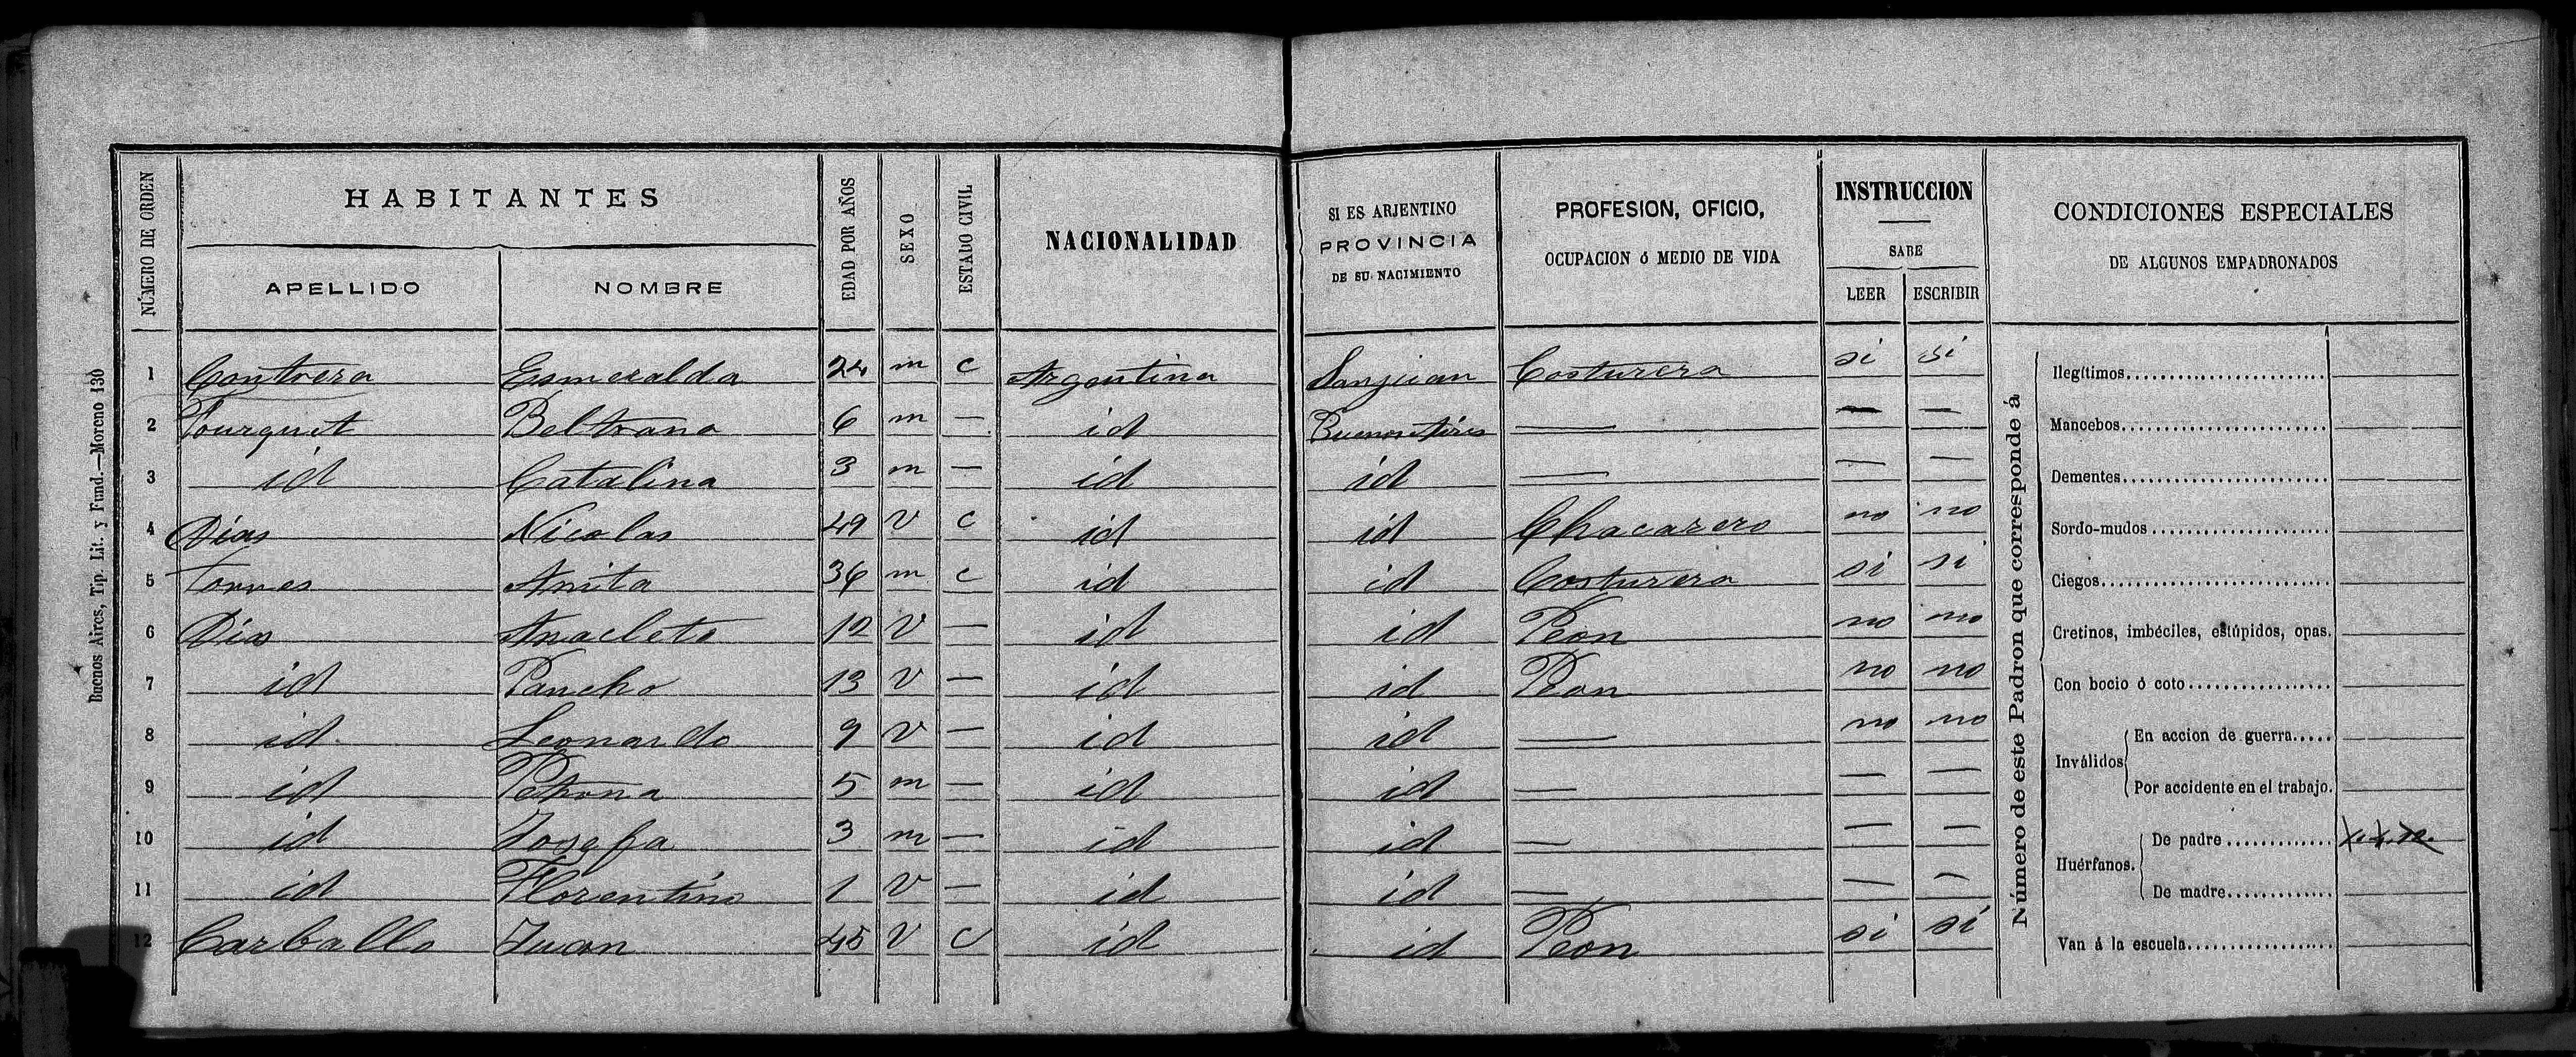 HABITANTES
NÚMERO DE ORDEN
APELLIDO NOMBRE
EDAD POR AÑOS
SEXO
ESTADO CIVIL
NACIONALIDAD
SI ES ARJENTINO
PROVINCIA
DE SU NACIMIENTO
PROFESION, OFICIO,
OCUPACION ó MEDIO DE VIDA
INSTRUCCION
SABE
LEER ESCRIBIR
CONDICIONES ESPECIALES
DE ALGUNOS EMPADRONADOS
1 Contrera Esmeralda 24 m c Argentina Sanjuan Costurera si si
2 Tourguet Beltrana 6 m — id Buenos Aires — — —
3 id Catalina 3 m — id id — — —
4 Dias Nicolas 49 v c id id Chacarero no no
5 Torres Anita 36 m c id id Costurera si si
6 Dias Anacleto 12 v — id id Peon no no
7 id Pancho 13 v — id id Peon no no
8 id Leonardo 9 v — id id — no no
9 id Petrona 5 m — id id — — —
10 id Josefa 3 m — id id — — —
11 id Florentino 1 v — id id — — —
12 Carballo Juan 45 v c id id Peon si si
Número de este Padron que corresponde á
Ilegítimos
Mancebos
Dementes
Sordo-mudos
Ciegos
Cretinos, imbéciles, estúpidos, opas.
Con bocio ó coto
Inválidos
En accion de guerra
Por accidente en el trabajo.
Huérfanos.
De padre
De madre
Van á la escuela
Buenos Aires, Tip. Lit. y Fund.—Moreno 130